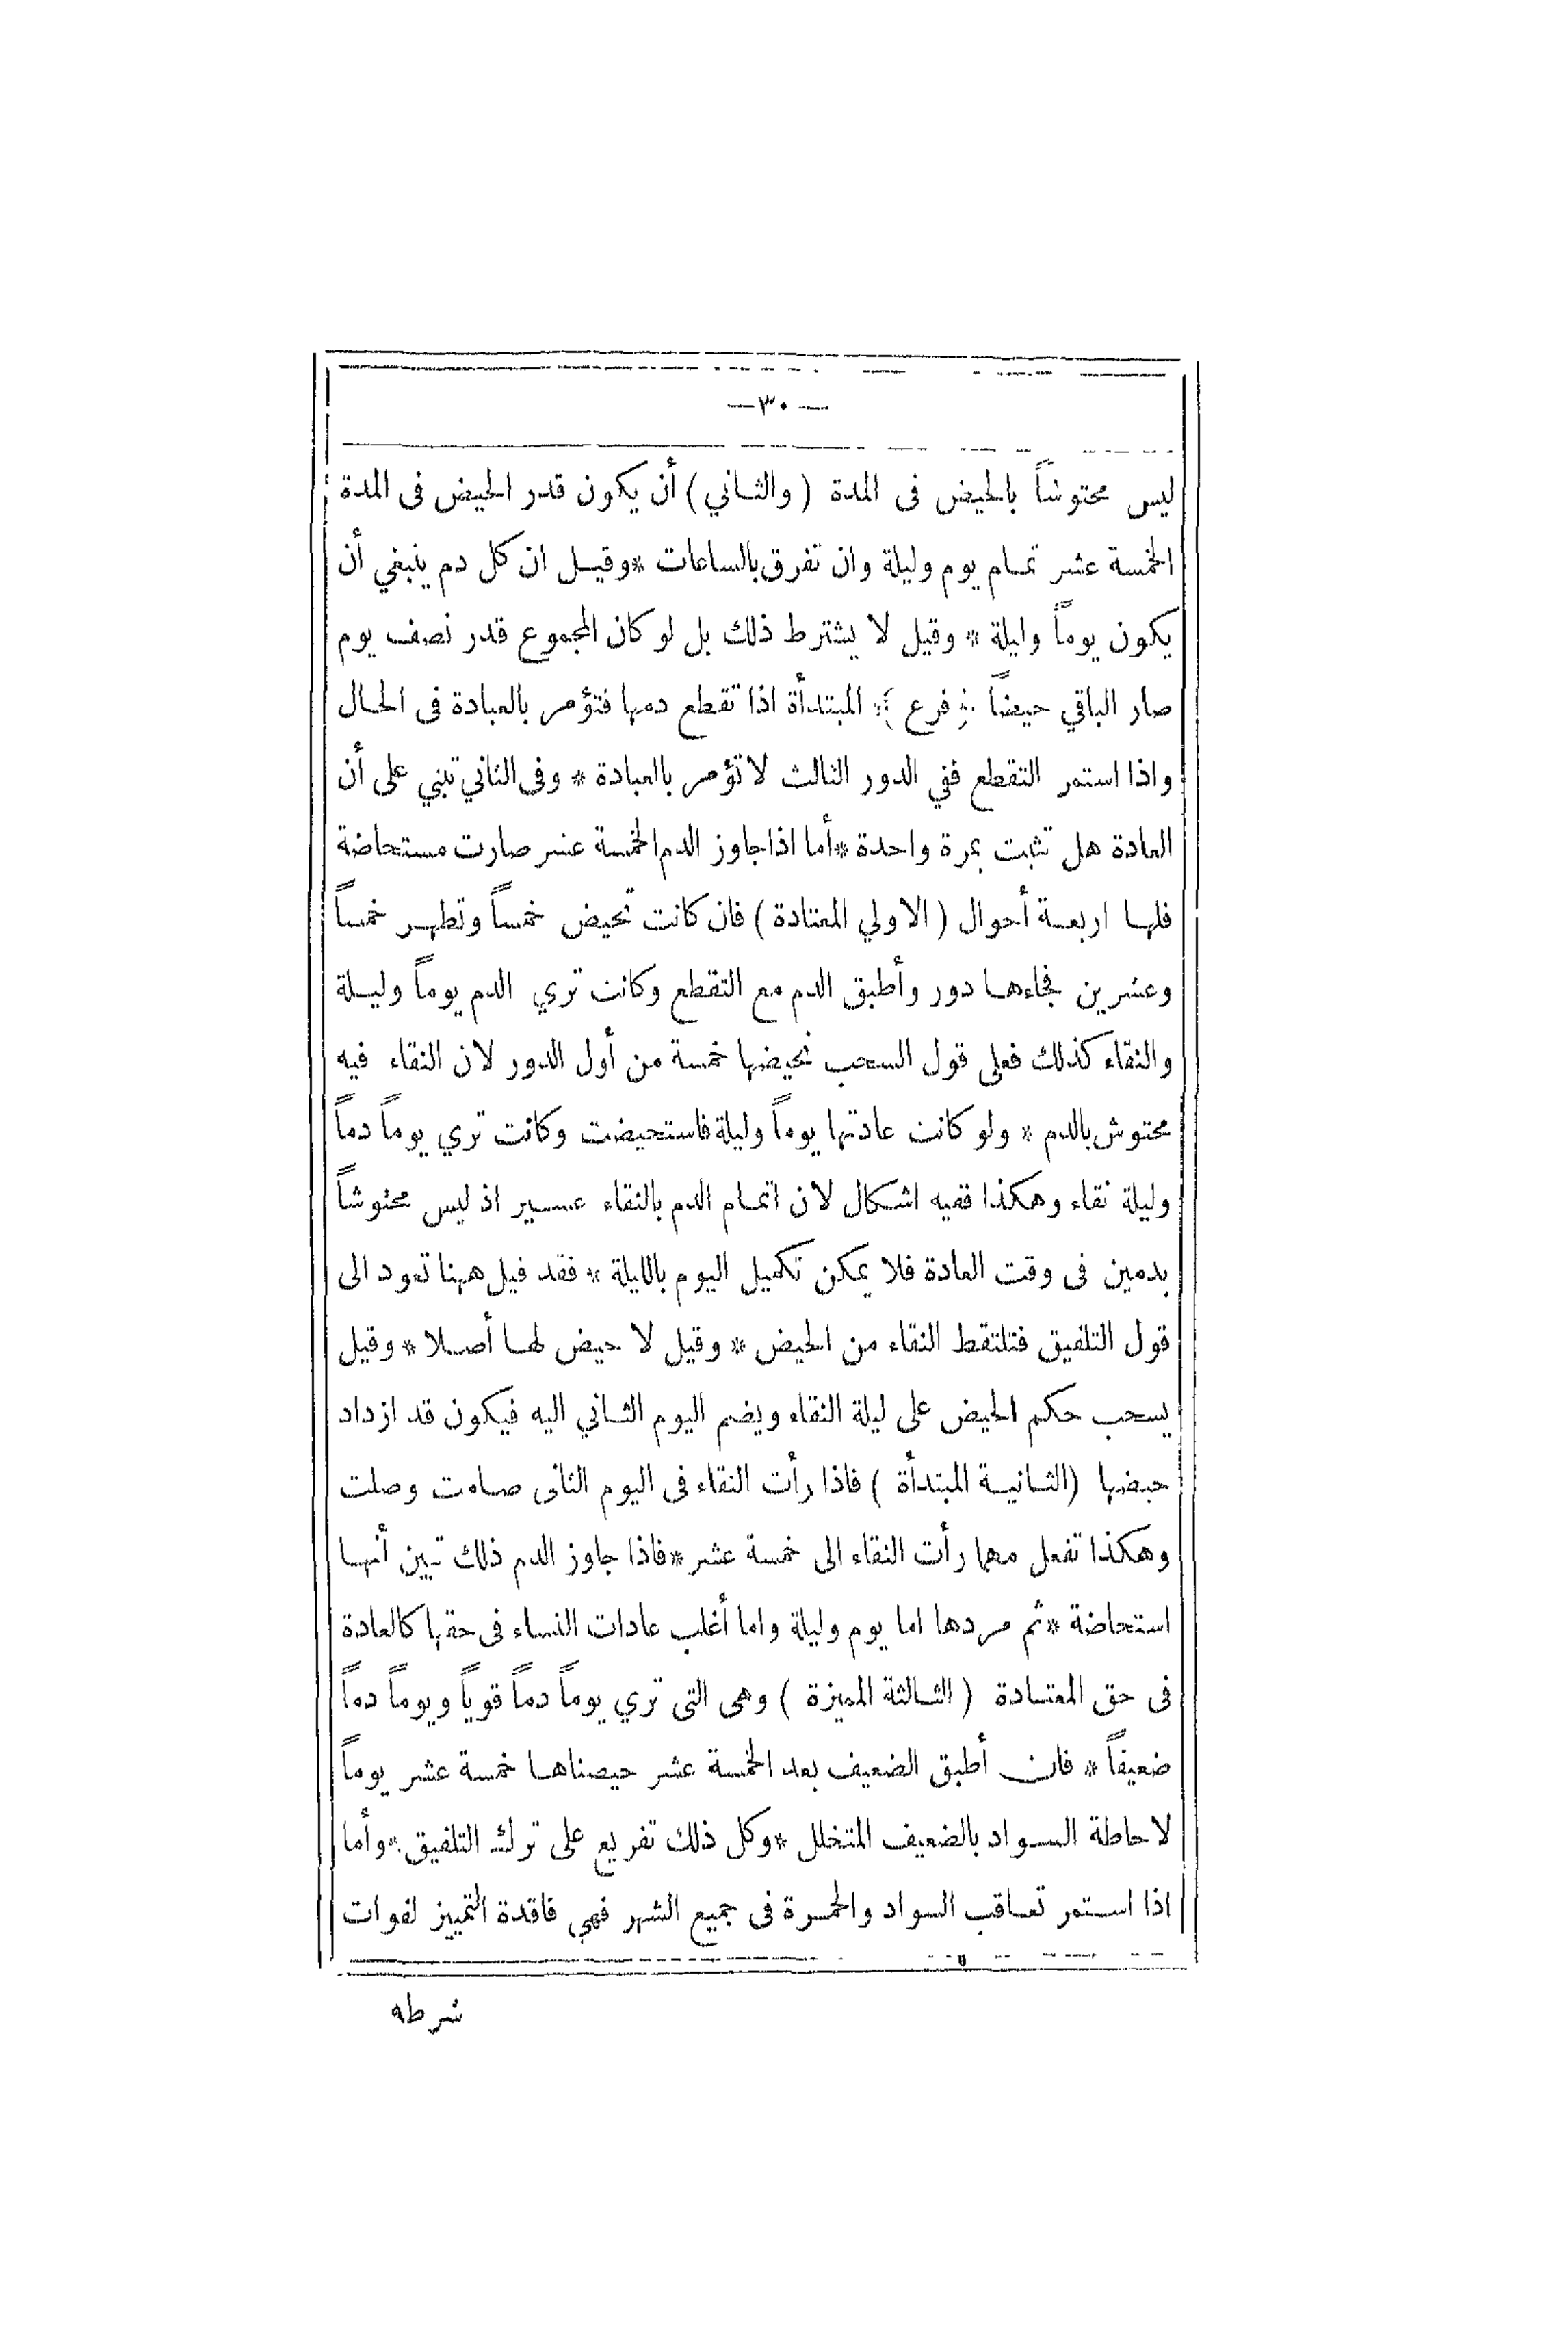 — ٣٠ —
ليس محتوشاً بالحيض فى المدة ( والثـاني ) أن يكون قدر الحيض فى المدة
الخمسة عشر تمـام يوم وليلة وان تفرق بالساعات * وقيـل ان كل دم ينبغي أن
يكون يوماً وليلة * وقيل لا يشترط ذلك بل لو كان المجموع قدر نصف يوم
صار الباقي حيضاً * فرع * المبتدأة اذا تقطع دمها فتؤمر بالعبادة فى الحـال
واذا استمر التقطع ففي الدور الثالث لا تؤمر بالعبادة * وفى الثاني تبني على أن
العادة هل تثبت بمرة واحدة * أما اذا جاوز الدم الخمسة عشر صارت مستحاضة
فلهـا اربعـة أحوال ( الاولي المعتادة ) فان كانت تحيض خمساً وتطهـر خمساً
وعشرين فجاءهـا دور وأطبق الدم مع التقطع وكانت تري الدم يوماً وليـلة
والنقاء كذلك فعلى قول السحب نحيضها خمسة من أول الدور لان النقاء فيه
محتوش بالدم * ولو كانت عادتها يوماً وليلة فاستحيضت وكانت تري يوماً دماً
وليلة نقاء وهكذا ففيه اشـكال لان اتمـام الدم بالنقاء عسـير اذ ليس محتوشاً
بدمين فى وقت العادة فلا يمكن تكميل اليوم بالليلة * فقد قيل ههنا تعود الى
قول التلفيق فتلتقط النقاء من الحيض * وقيل لا حيض لهـا أصـلا * وقيل
يسحب حكم الحيض على ليلة النقاء ويضم اليوم الثـاني اليه فيكون قد ازداد
حيضها (الثـانيـة المبتدأة ) فاذا رأت النقاء فى اليوم الثانى صـامت وصلت
وهكذا تفعل مهما رأت النقاء الى خمسة عشر * فاذا جاوز الدم ذلك تبين أنهـا
استحاضة * ثم مردها اما يوم وليلة واما أغلب عادات النساء فى حقها كالعادة
فى حق المعتـادة ( الثـالثة المميزة ) وهى التى تري يوماً دماً قوياً ويوماً دماً
ضعيفاً * فان أطبق الضعيف بعد الخمسة عشر حيضناهـا خمسة عشر يوماً
لاحاطة السـواد بالضعيف المتخلل * وكل ذلك تفريع على ترك التلفيق * وأما
اذا استـمر تعـاقب السواد والحمـرة فى جميع الشهر فهي فاقدة التمييز لفوات
شرطه